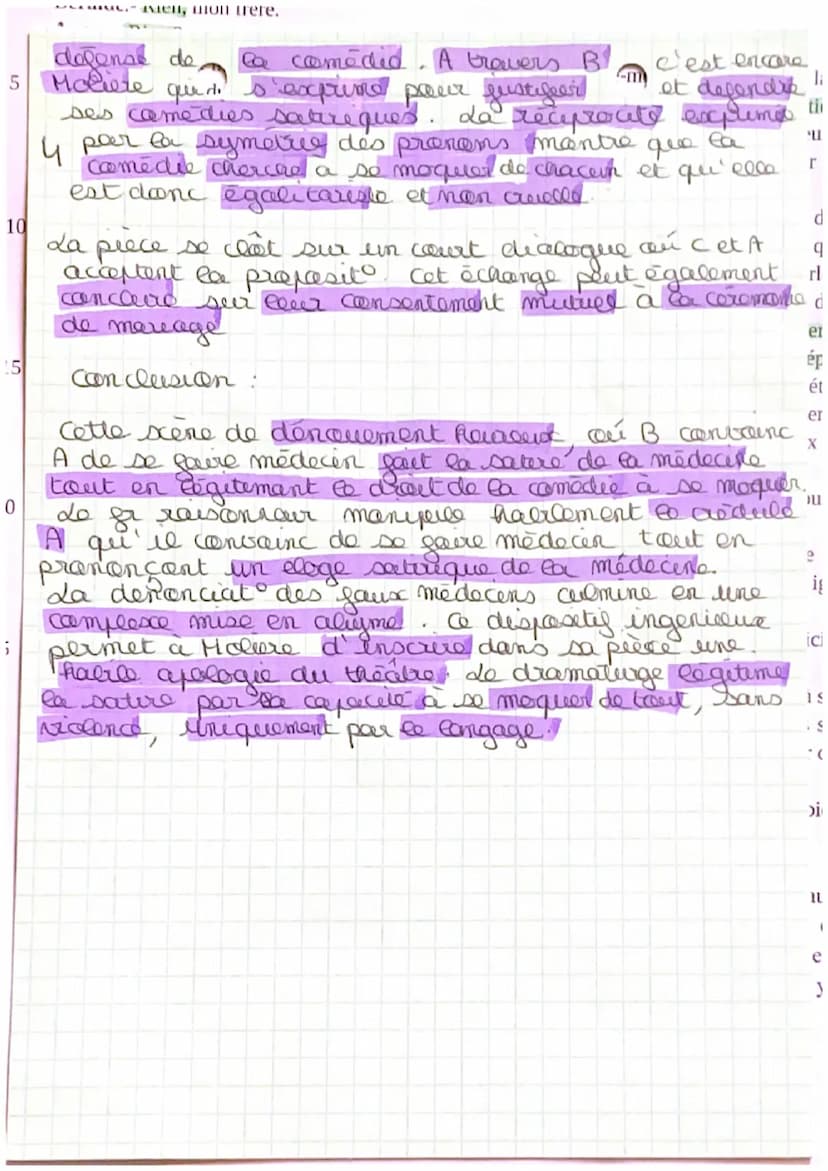 Rien, mon frère.
défense de la comédie. A travers B c'est encore
Molière qui s'exprime pour justifier et défendre
ses comédies satiriques. La réciprocité exprimée
par la symétrie des pronoms montre que la
comédie cherche a se moquer de chacun et qu'elle
est donc égalitariste et non cruelle.
La pièce se clôt sur un court dialogue où C et A
acceptent la proposit°. Cet échange peut également
conclure sur leur consentement mutuel à la cérémonie
de mariage
Conclusion :
Cette scène de dénouement heureux, où B convainc
A de se faire médecin fait la satire de la médecine
tout en légitimant le droit de la comédie à se moquer.
Le fr raisonneur manipule habilement le crédule
A qu'il convainc de se faire médecin tout en
prononçant un éloge satirique de la médecine.
La dénonciat° des faux médecins culmine en une
complexe mise en abîyme. Ce dispositif ingénieux
permet à Molière d'inscrire dans sa pièce une
habile apologie du théâtre. Le dramaturge légitime
la satire par sa capacité à se moquer de tout, sans
violence, uniquement par le langage.